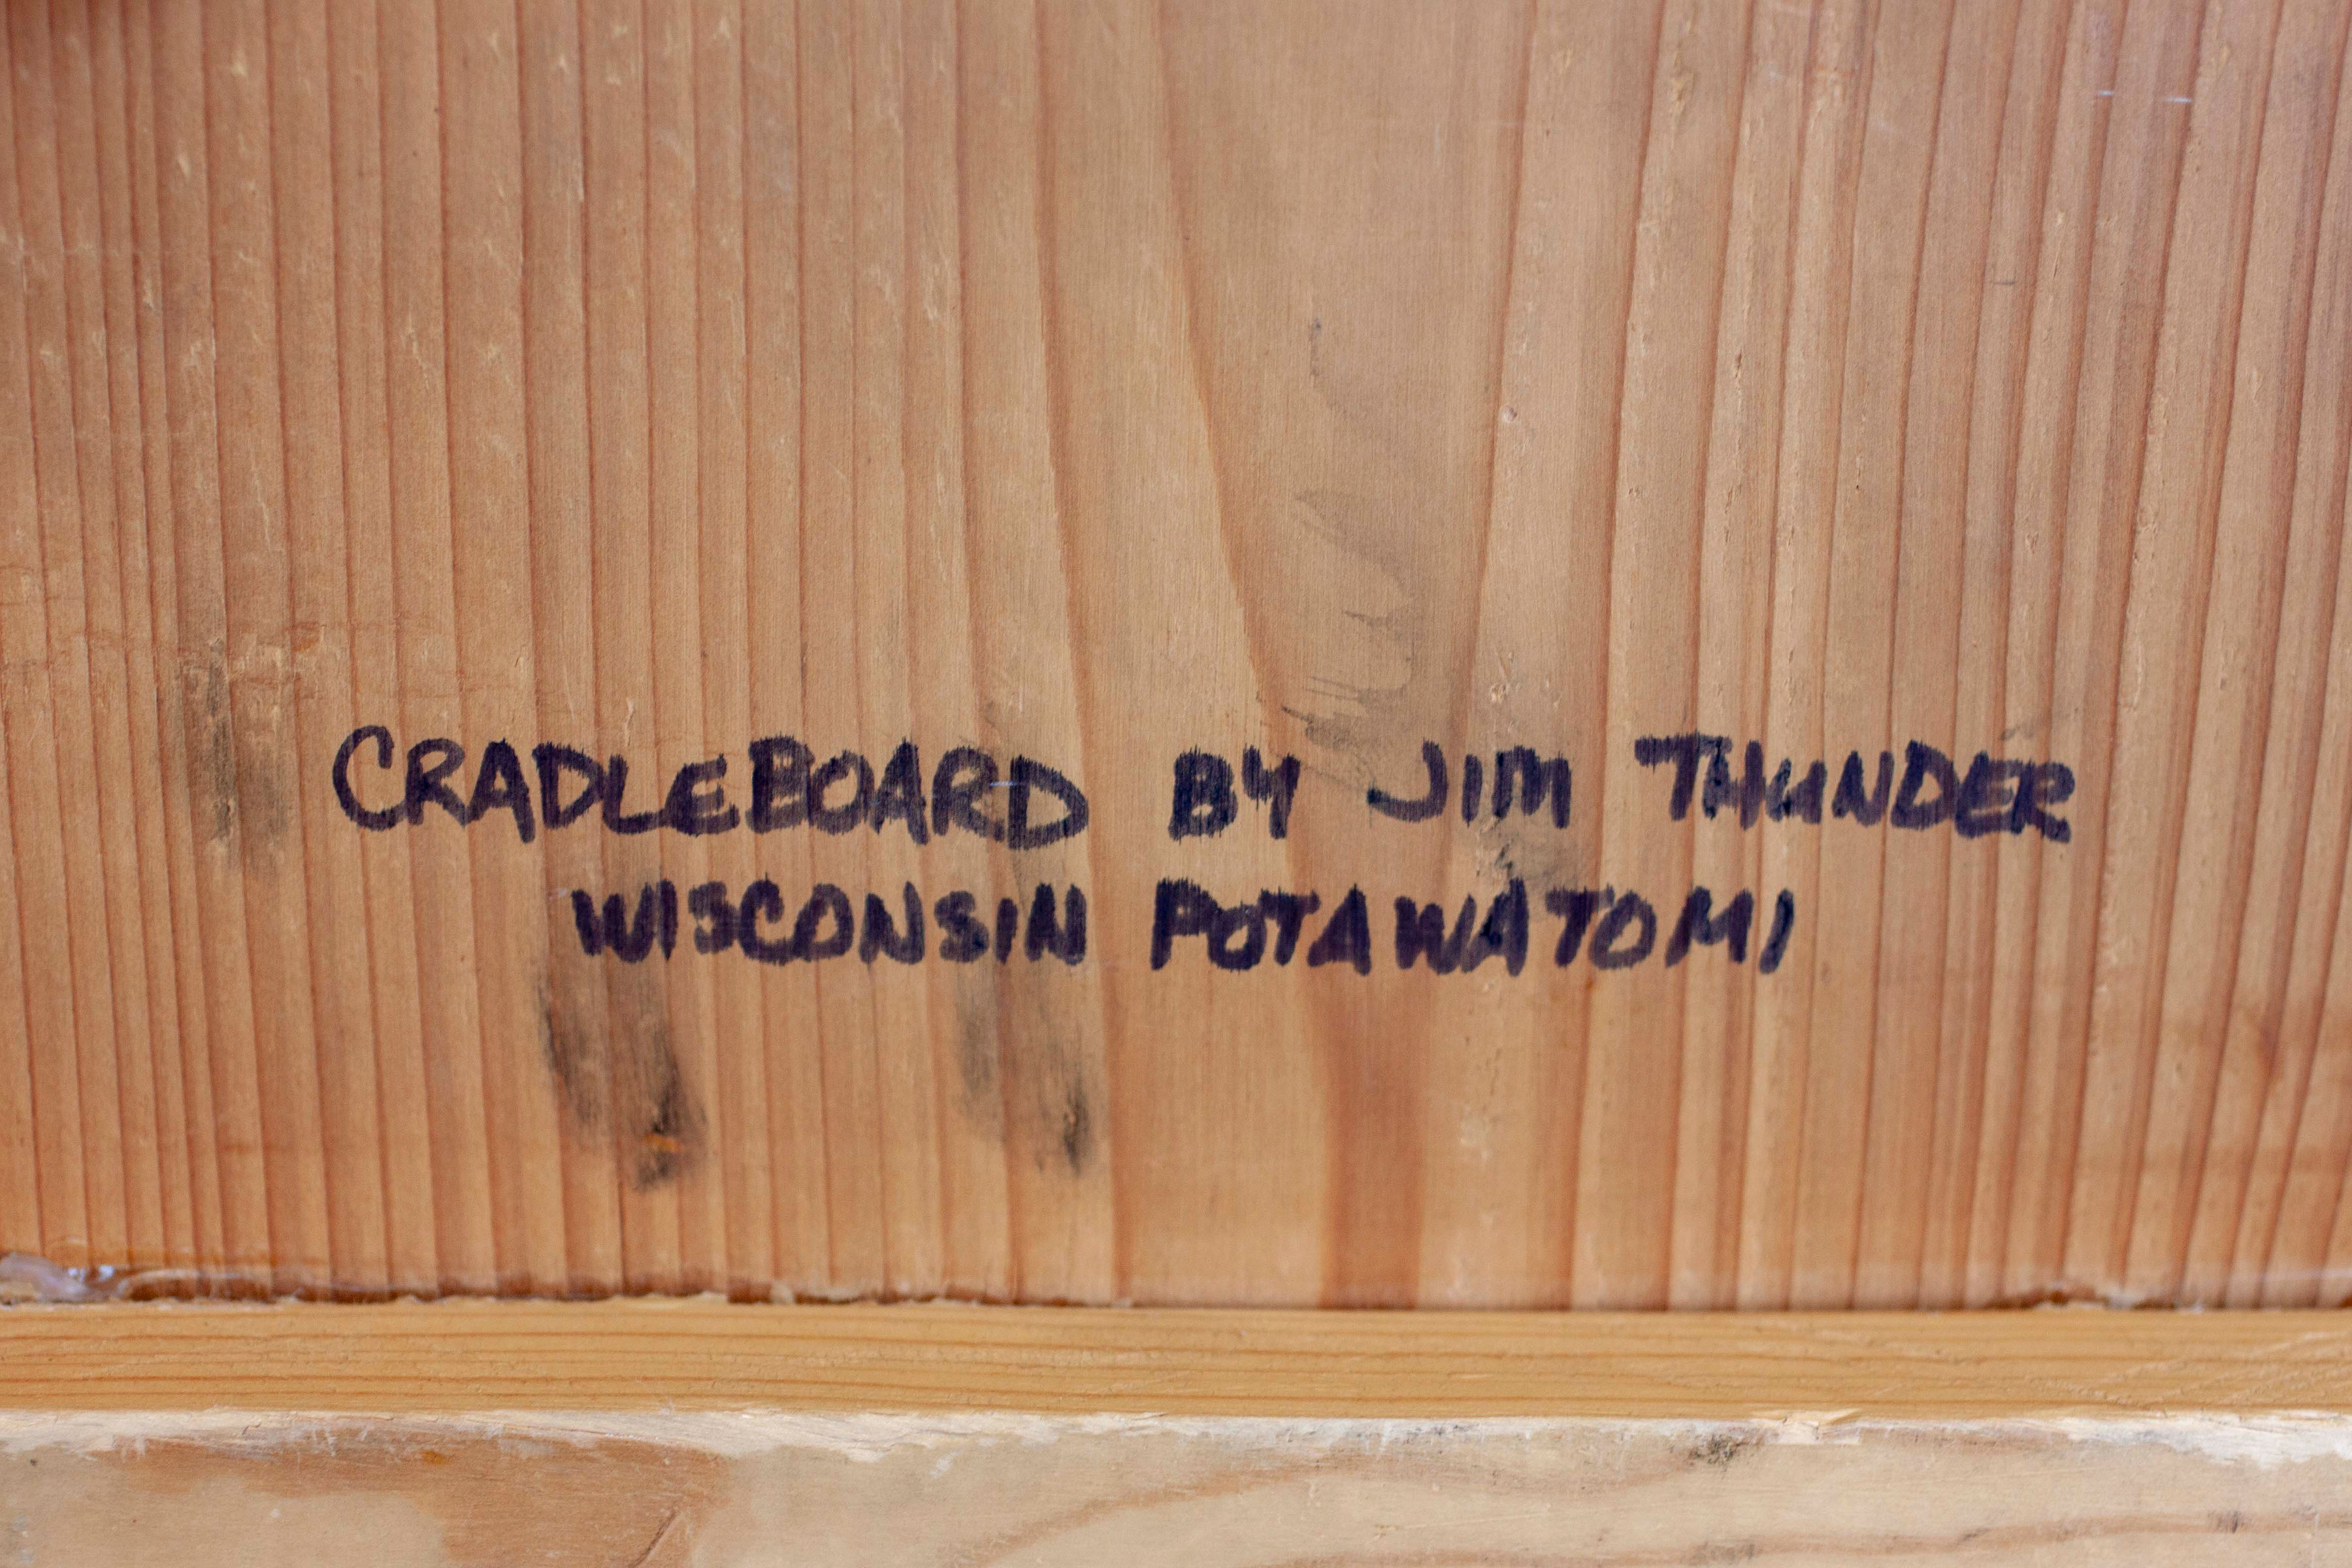 CRADLEBOARD BY JIM THUNDER
WISCONSIN POTAWATOMI